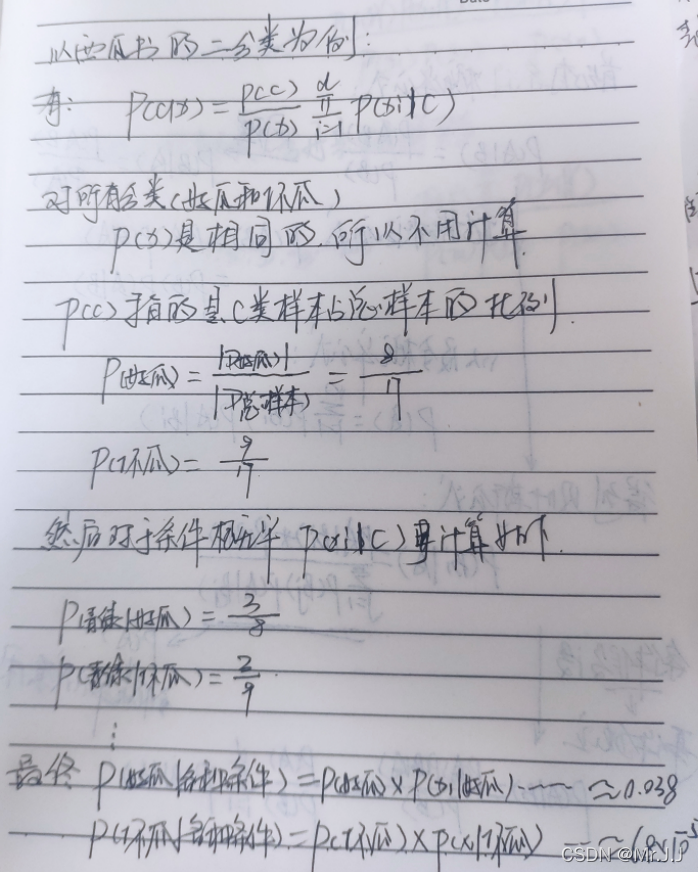 以西瓜书的二分类为例:
有: P(c|x) = P(c)/P(x) ∏_{i=1}^{d} P(xi|C)
对所有分类(好瓜和坏瓜)
P(x)是相同的.所以不用计算.
P(c)指的是C类样本占总样本的比例.
P(好瓜) = |D好瓜|/|D总样本| = 8/17
P(坏瓜) = 9/17
然后对于条件概率 P(xi|C) 要计算如下.
P(青绿|好瓜) = 3/8
P(青绿|坏瓜) = 2/9
⋮
最终 P(好瓜|各种条件) = P(好瓜) × P(xi|好瓜) …… ≈ 0.038
P(坏瓜|各种条件) = P(坏瓜) × P(x|坏瓜) … ≈
CSDN @Mr.JiJ